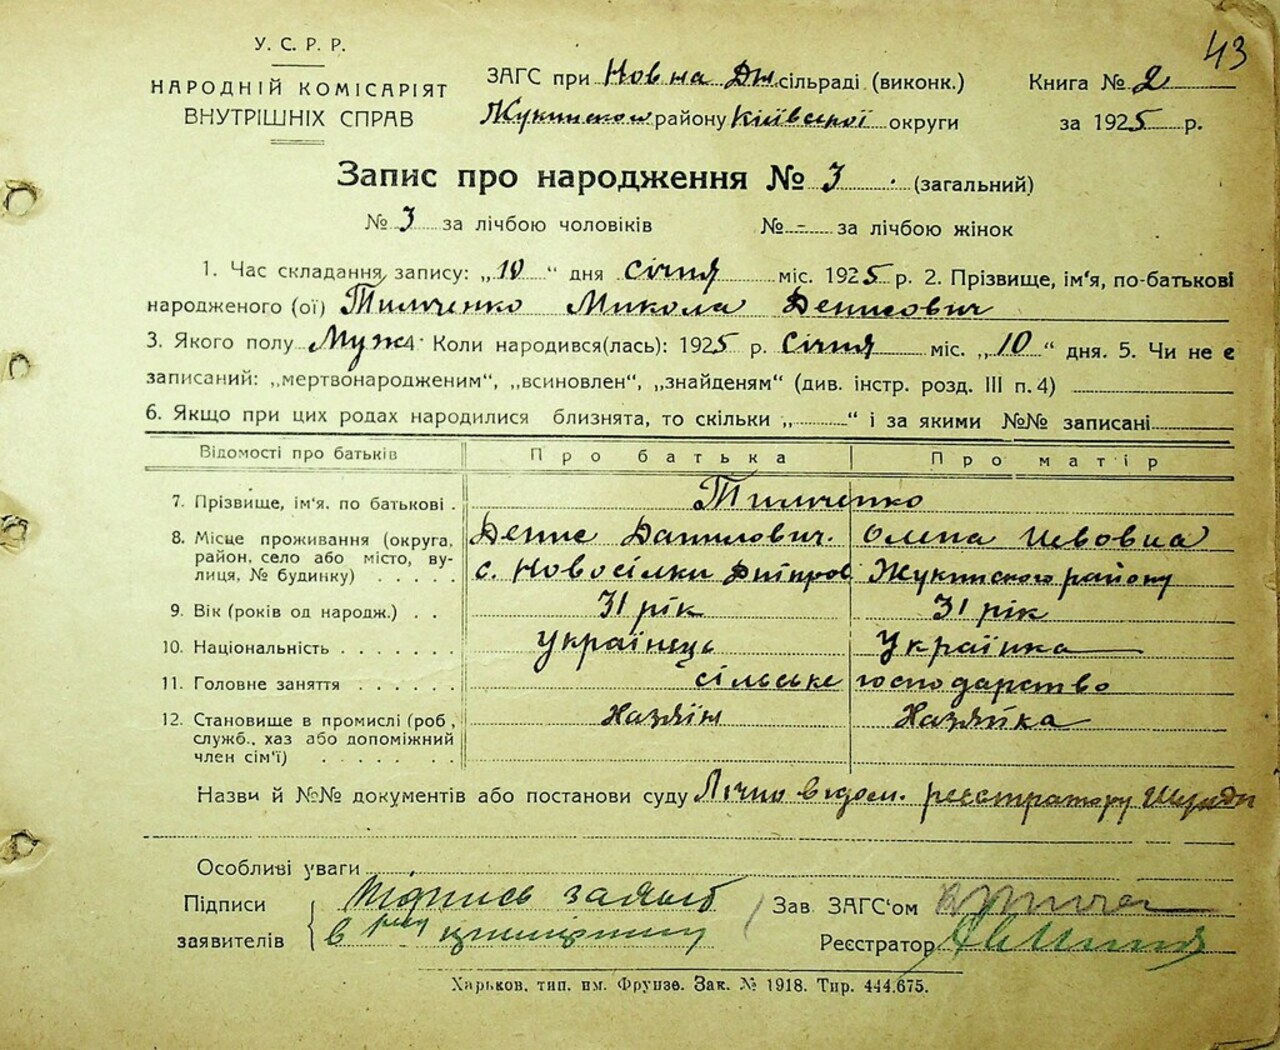 43
У. С. Р. Р.
НАРОДНІЙ КОМІСАРІЯТ
ВНУТРІШНІХ СПРАВ
ЗАГС при Нов на Дн. сільраді (виконк.)
Книга № 2
Жукинском району Київської округи
за 1925 р.
Запис про народження № 3 (загальний)
№ 3 за лічбою чоловіків № - за лічбою жінок
1. Час складання запису: „10“ дня січня міс. 1925 р. 2. Прізвище, ім'я, по-батькові
народженого (ої) Тимченко Микола Денисович
3. Якого полу Муж 4. Коли народився(лась): 1925 р. Січня міс. „10“ дня. 5. Чи не є
записаний: „мертвонародженим“, „всиновлен“, „знайденям“ (див. інстр. розд. III п. 4)
6. Якщо при цих родах народилися близнята, то скільки „ “ і за якими №№ записані
Відомості про батьків Про батька Про матір
7. Прізвище, ім'я. по батькові . Тимченко
8. Місце проживання (округа, Денис Данилович. Олена
район, село або місто, ву-
лиця, № будинку) . . . . . с. Новосілки Дніпров Жукинского району
9. Вік (років од народж.) . . 31 рік 31 рік
10. Національність . . . . . . . Українець Українка
11. Головне заняття . . . . . . сільське господарство
12. Становище в промислі (роб., Хазяїн Хазяйка
служб., хаз або допоміжний
член сім'ї) . . . . . .
Назви й №№ документів або постанови суду Лічно відом. реєстратору
Особливі уваги
Підписи Підпись заявит Зав. ЗАГС'ом
заявителів в
Реєстратор
Харьков, тип. им. Фрунзе. Зак. № 1918. Тир. 444.675.